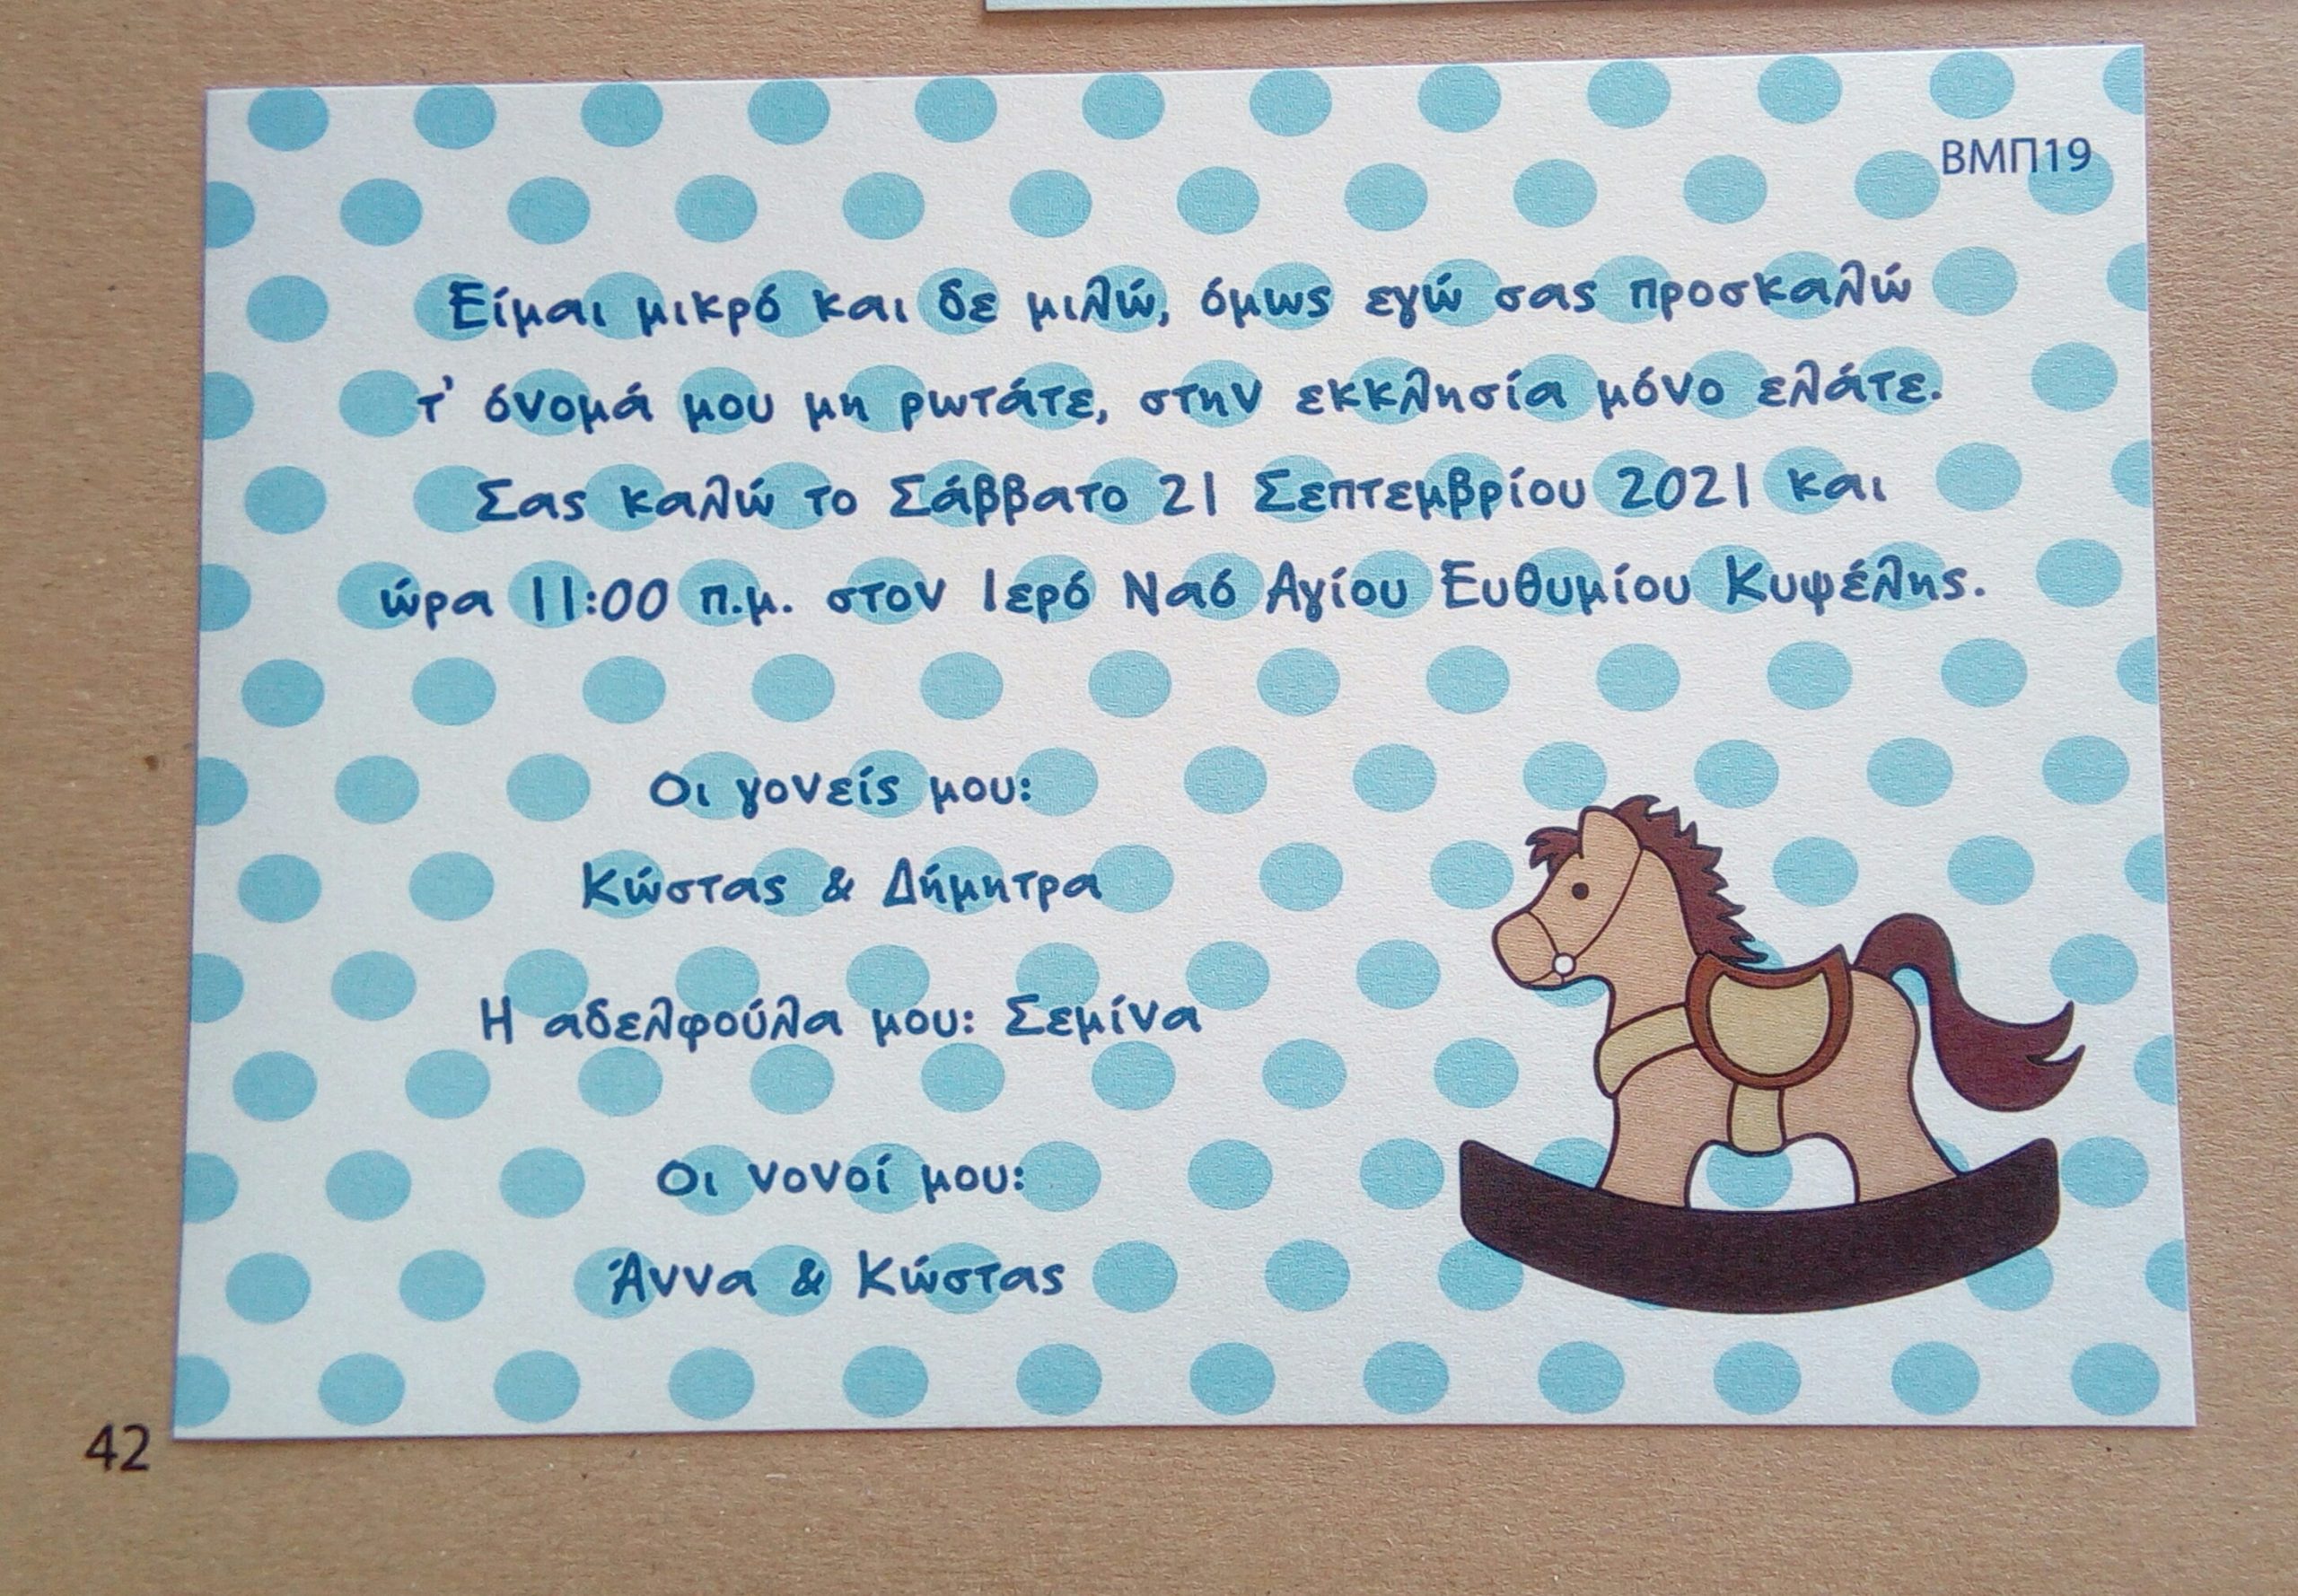 ΒΜΠ19
Είμαι μικρό και δε μιλώ, όμως εγώ σας προσκαλώ
τ' όνομά μου μη ρωτάτε, στην εκκλησία μόνο ελάτε.
Σας καλώ το Σάββατο 21 Σεπτεμβρίου 2021 και
ώρα 11:00 π.μ. στον Ιερό Ναό Αγίου Ευθυμίου Κυψέλης.
Οι γονείς μου:
Κώστας & Δήμητρα
Η αδελφούλα μου: Σεμίνα
Οι νονοί μου:
Άννα & Κώστας
42